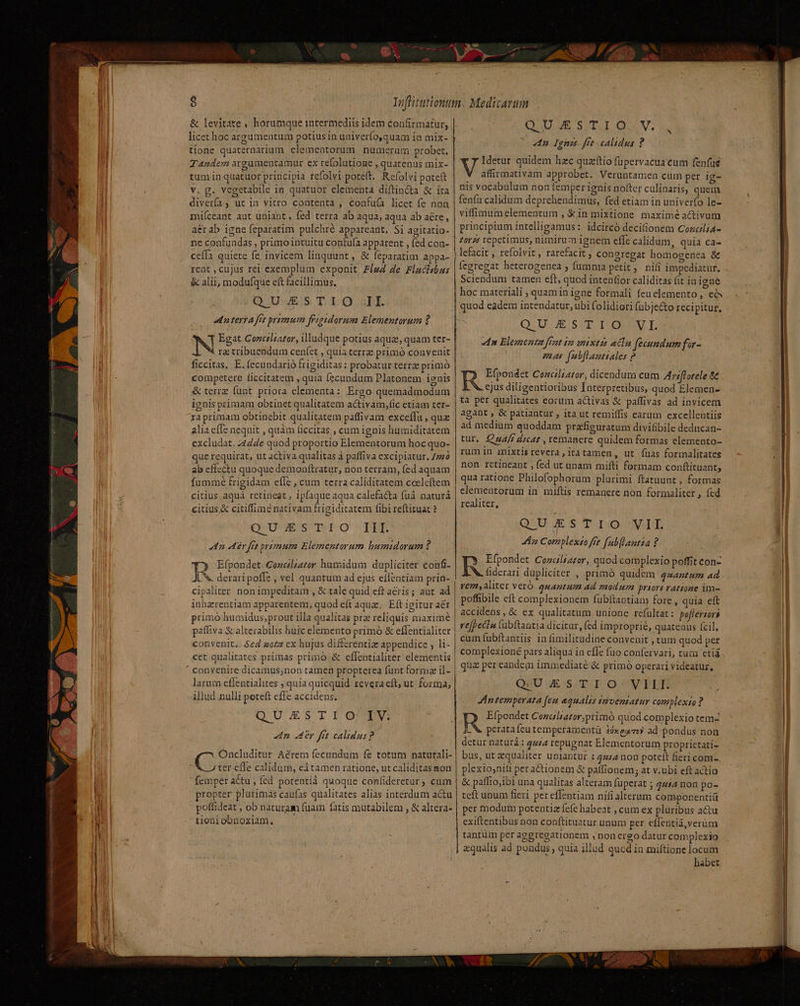 8 Institutionum Medicarum
& levitate, horumque intermediis idem confirmatur,
licet hoc argumentum potius in universo, quam in mix-
tione quaternarium elementorum numerum probet.
Tandem argumentamur ex resolutione, quatenus mix-
tum in quatuor principia resolvi potest. Resolvi potest
v. g. vegetabile in quatuor elementa distincta & ita
diversa, ut in vitro contenta, confusa licet se non
misceant aut uniant, sed terra ab aqua, aqua ab aëre,
aër ab igne separatim pulchrè appareant. Si agitatio-
ne confundas, primo intuitu confusa apparent, sed con-
cessa quiete se invicem linquunt, & separatim appa-
rent, cujus rei exemplum exponit Flud de Fluctibus
& alii, modusque est facillimus.
QUÆSTIO II.
An terra sit primum frigidorum Elementorum?
NEgat Conciliator, illudque potius aquæ, quam ter-
ræ tribuendum censet, quia terræ primò convenit
siccitas, E. secundariò frigiditas: probatur terræ primò
competere siccitatem, quia secundum Platonem ignis
& terræ sunt priora elementa: Ergo quemadmodum
ignis primam obtinet qualitatem activam, sic etiam ter-
ra primam obtinebit qualitatem passivam excessu, quæ
alia esse nequit, quàm siccitas, cum ignis humiditatem
excludat. Adde quod proportio Elementorum hoc quo-
que requirat, ut activa qualitas à passiva excipiatur. Imò
ab effectu quoque demonstratur, non terram, sed aquam
summè frigidam esse, cum terra caliditatem cœlestem
citius aquâ retineat, ipsaque aqua calefacta suâ naturâ
citius & citissimè nativam frigiditatem sibi restituat?
QUÆSTIO III.
An Aër sit primum Elementorum humidorum?
REspondet Conciliator humidum dupliciter consi-
derari posse, vel quantum ad ejus essentiam prin-
cipaliter non impeditam, & tale quid est aëris; aut ad
inhærentiam apparentem, quod est aquæ. Est igitur aër
primò humidus, prout illa qualitas præ reliquis maximè
passiva & alterabilis huic elemento primò & essentialiter
convenit. Sed nota ex hujus differentiæ appendice, li-
cet qualitates primas primò & essentialiter elementis
convenire dicamus, non tamen propterea sunt formæ il-
larum essentialites, quia quicquid revera est, ut forma,
illud nulli potest esse accidens.
QUÆSTIO IV.
An Aër sit calidus?
COncluditur Aërem secundum se totum naturali-
ter esse calidum, eâ tamen ratione, ut caliditas non
semper actu, sed potentiâ quoque consideretur, cum
propter plurimas causas qualitates alias interdum actu
possideat, ob naturam suam satis mutabilem, & altera-
tioni obnoxiam.
QUÆSTIO V.
An Ignis sit calidus?
VIdetur quidem hæc quæstio supervacua cum sensus
affirmativam approbet. Veruntamen cum per ig-
nis vocabulum non semper ignis noster culinaris, quem
sensu calidum deprehendimus, sed etiam in universo le-
vissimum elementum, & in mixtione maximè activum
principium intelligamus: idcircò decisionem Concilia-
toris repetimus, nimirum ignem esse calidum, quia ca-
lefacit, resolvit, rarefacit, congregat homogenea &
segregat heterogenea, summa petit, nisi impediatur.
Sciendum tamen est, quod intensior caliditas sit in igne
hoc materiali, quam in igne formali seu elemento, eò
quod eadem intendatur, ubi solidiori subjecto recipitur.
QUÆSTIO VI.
An Elementa sint in mixtis actu secundum for-
mas substantiales?
REspondet Conciliator, dicendum cum Aristotele &
ejus diligentioribus Interpretibus, quod Elemen-
ta per qualitates eorum activas & passivas ad invicem
agant, & patiantur, ita ut remissis earum excellentiis
ad medium quoddam præfiguratum divisibile deducan-
tur. Quasi dicat, remanere quidem formas elemento-
rum in mixtis revera, ita tamen, ut suas formalitates
non retineant, sed ut unam misti formam constituant,
qua ratione Philosophorum plurimi statuunt, formas
elementorum in mistis remanere non formaliter, sed
realiter.
QUÆSTIO VII.
An Complexio sit substantia?
REspondet Conciliator, quod complexio possit con-
siderari dupliciter, primò quidem quantum ad
rem, aliter verò quantum ad modum priore ratione im-
possibile est complexionem substantiam fore, quia est
accidens, & ex qualitatum unione resultat: posteriori
respectu substantia dicitur, sed impropriè, quatenus scil.
cum substantiis in similitudine convenit, tum quod per
complexionê pars aliqua in esse suo conservari, tum etiâ
quæ per eandem immediatè & primò operari videatur.
QUÆSTIO VIII.
An temperata seu æqualis inveniatur complexio?
REspondet Conciliator, primò quod complexio tem-
perata seu temperamentû ad pondus non
detur naturâ: quia repugnat Elementorum proprietati-
bus, ut æqualiter uniantur: quia non potest fieri com-
plexio, nisi per actionem & passionem; at v. ubi est actio
& passio, ibi una qualitas alteram superat; quia non po-
test unum fieri per essentiam nisi alterum componentiû
per modum potentiæ sese habeat, cum ex pluribus actu
existentibus non constituatur unum per essentiâ, verùm
tantùm per aggregationem, non ergo datur complexio
æqualis ad pondus, quia illud quod in mistione locum
habet